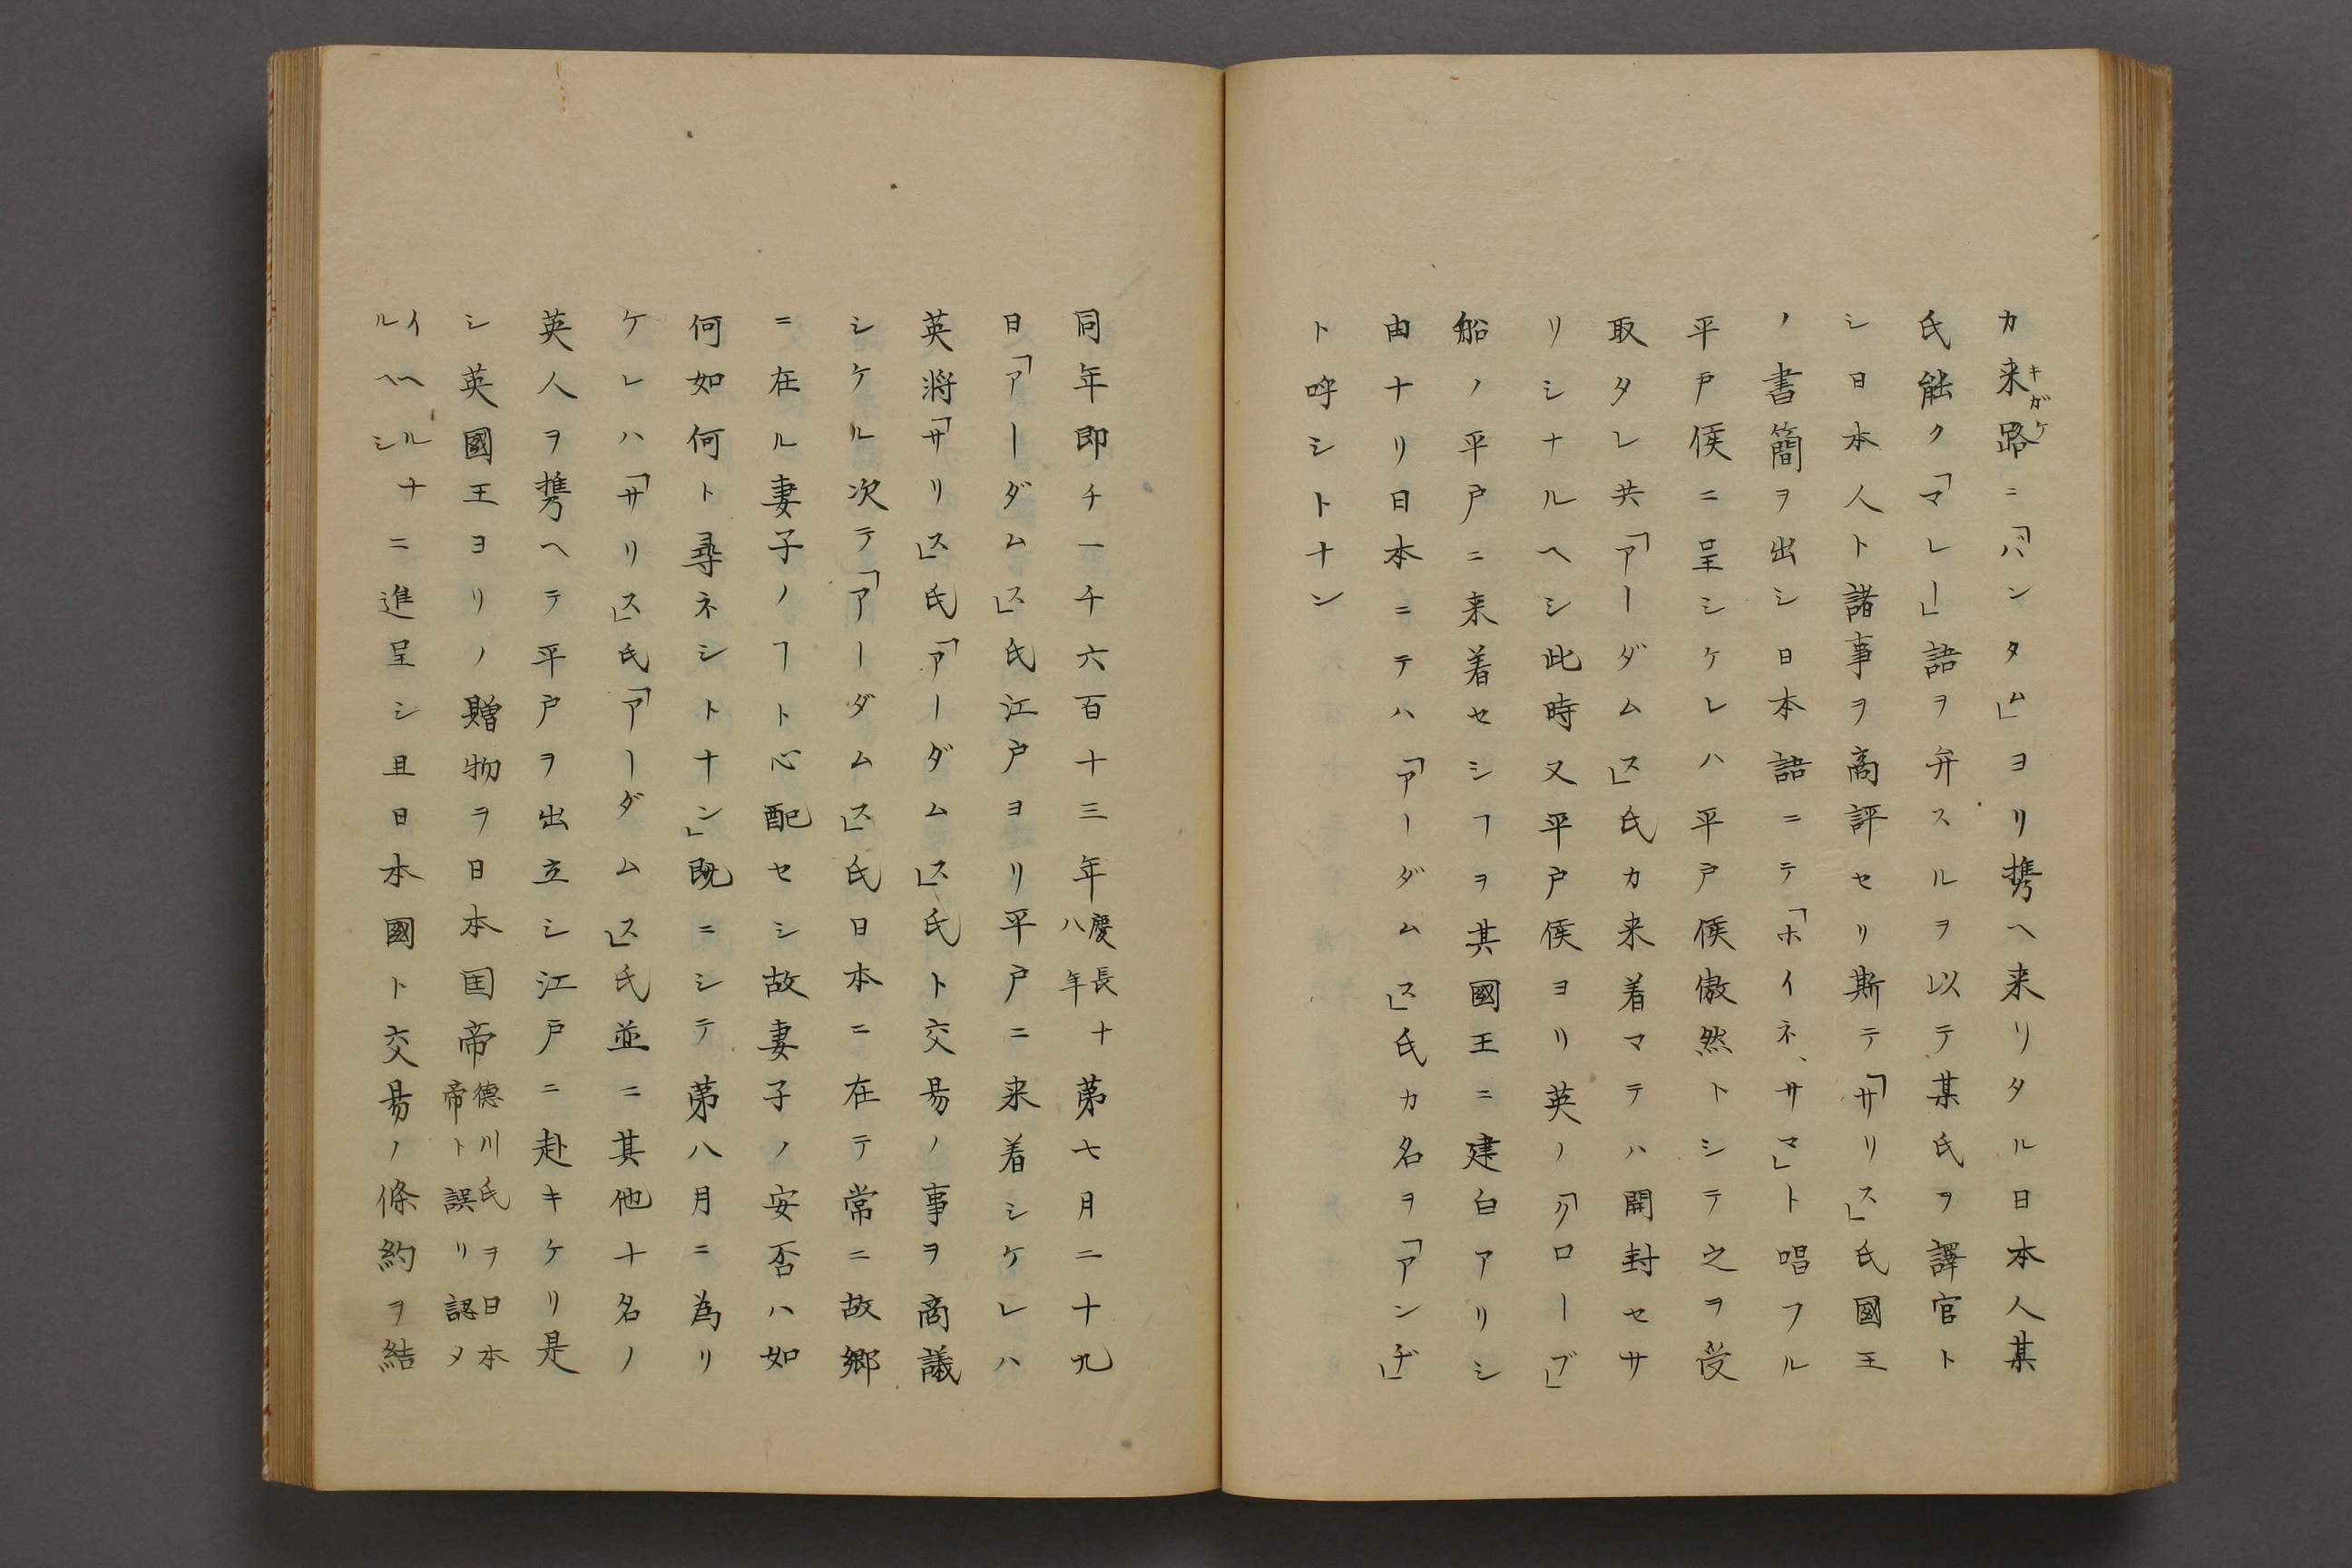 カ来路キガケニ「バンタム」ヨリ携ヘ来リタル日本人某
氏能ク「マレー」語ヲ弁スルヲ以テ某氏ヲ譯官ト
シ日本人ト諸事ヲ商評セリ斯テ「サリス」氏國王
ノ書簡ヲ出シ日本語ニテ「ホイネ、サマ」ト唱フル
平戸侯ニ呈シケレハ平戸侯傲然トシテ之ヲ受
取タレ共「アーダムス」氏カ来着マテハ開封セサ
リシナルヘシ此時又平戸侯ヨリ英ノ「クローブ」
船ノ平戸ニ来着セシヿヲ其國王ニ建白アリシ
由ナリ日本ニテハ「アーダムス」氏カ名ヲ「アンヂ」
ト呼シトナン
同年即チ一千六百十三年慶長十八年第七月二十九
日「アーダムス」氏江戸ヨリ平戸ニ来着シケレハ
英将「サリス」氏「アーダムス」氏ト交易ノ事ヲ商議
シケル次テ「アーダムス」氏日本ニ在テ常ニ故郷
ニ在ル妻子ノヿト心配セシ故妻子ノ安否ハ如
何如何ト尋ネシトナン」既ニシテ第八月ニ為リ
ケレハ「サリス」氏「アーダムス」氏並ニ其他十名ノ
英人ヲ携ヘテ平戸ヲ出立シ江戸ニ赴キケリ是
シ英國王ヨリノ贈物ヲ日本国帝德川氏ヲ日本帝ト誤リ認メ
イヘルナルヘシニ進呈シ且日本國ト交易ノ條約ヲ結